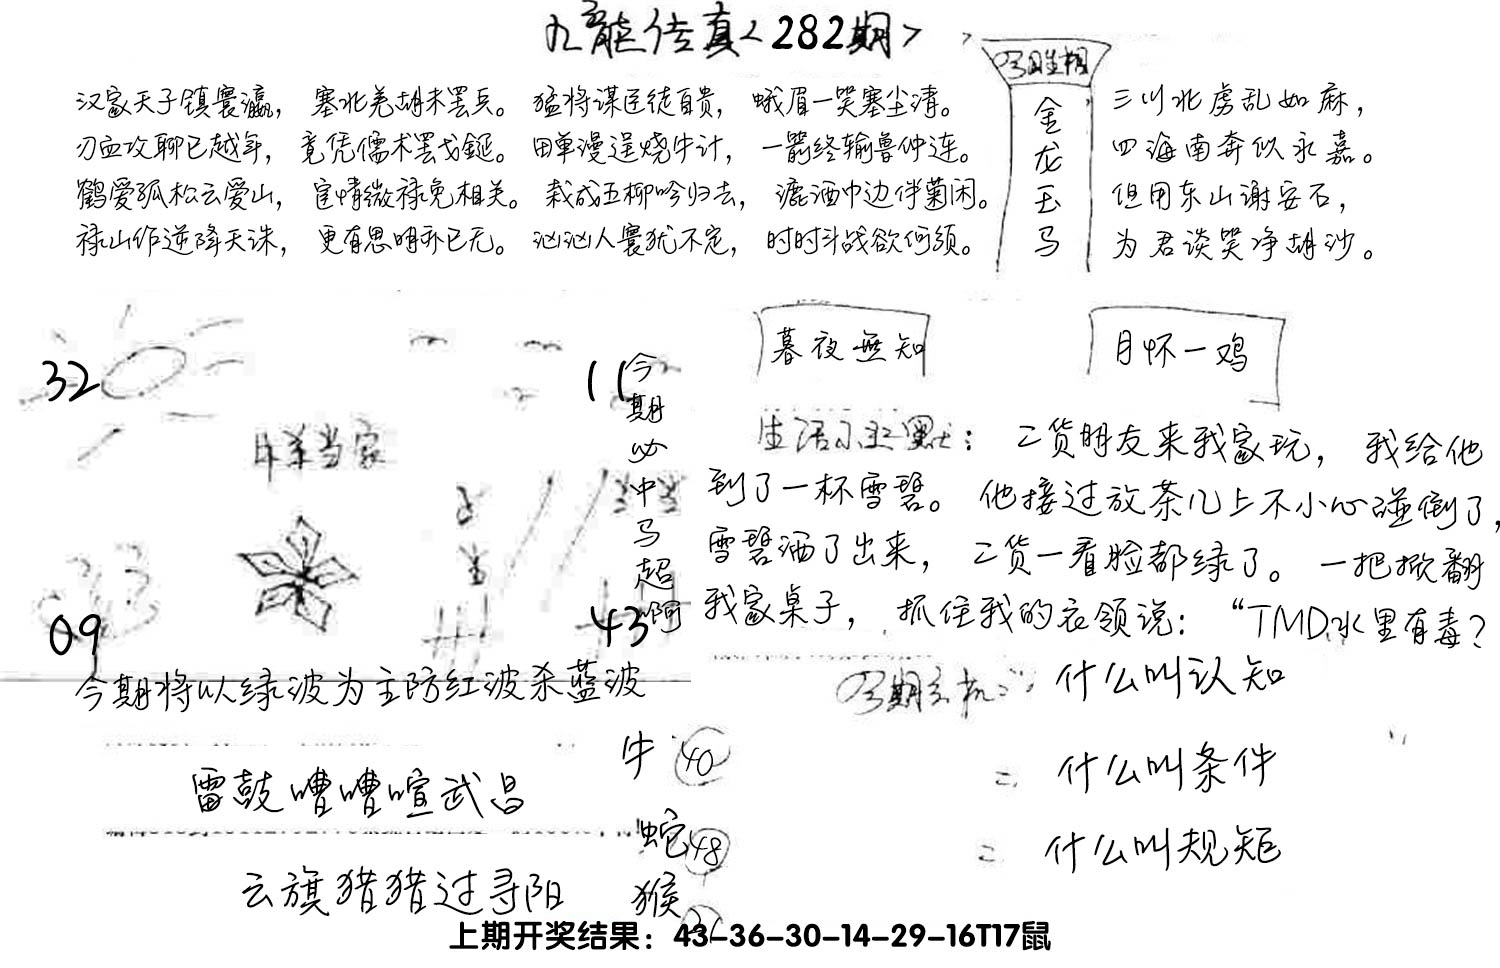 九龙传真<282期>
今期生相
金龙玉马
汉家天子镇寰瀛，塞北羌胡未罢兵。猛将谋臣徒自贵，蛾眉一笑塞尘清。
刃血攻聊已越年，竟凭儒术罢戈鋋。田单漫逞烧牛计，一箭终输鲁仲连。
鹤爱孤松云爱山，宦情微禄免相关。栽成五柳吟归去，漉酒巾边伴菊闲。
禄山作逆降天诛，更有思明亦已无。汹汹人寰犹不定，时时斗战欲何须。
三川北虏乱如麻，
四海南奔似永嘉。
但用东山谢安石，
为君谈笑净胡沙。
暮夜無知
月怀一鸡
32
11
今期必中马超啊
09
43
今期将以绿波为主防红波杀蓝波
生活小幽默：二货朋友来我家玩，我给他
到了一杯雪碧。他接过放茶几上不小心碰倒了，
雪碧洒了出来，二货一看脸都绿了。一把掀翻
我家桌子，抓住我的衣领说：“TMD水里有毒？
今期玄机：什么叫认知
什么叫条件
什么叫规矩
牛 40
蛇 48
猴
雷鼓嘈嘈喧武昌
云旗猎猎过寻阳
上期开奖结果：43-36-30-14-29-16T17鼠